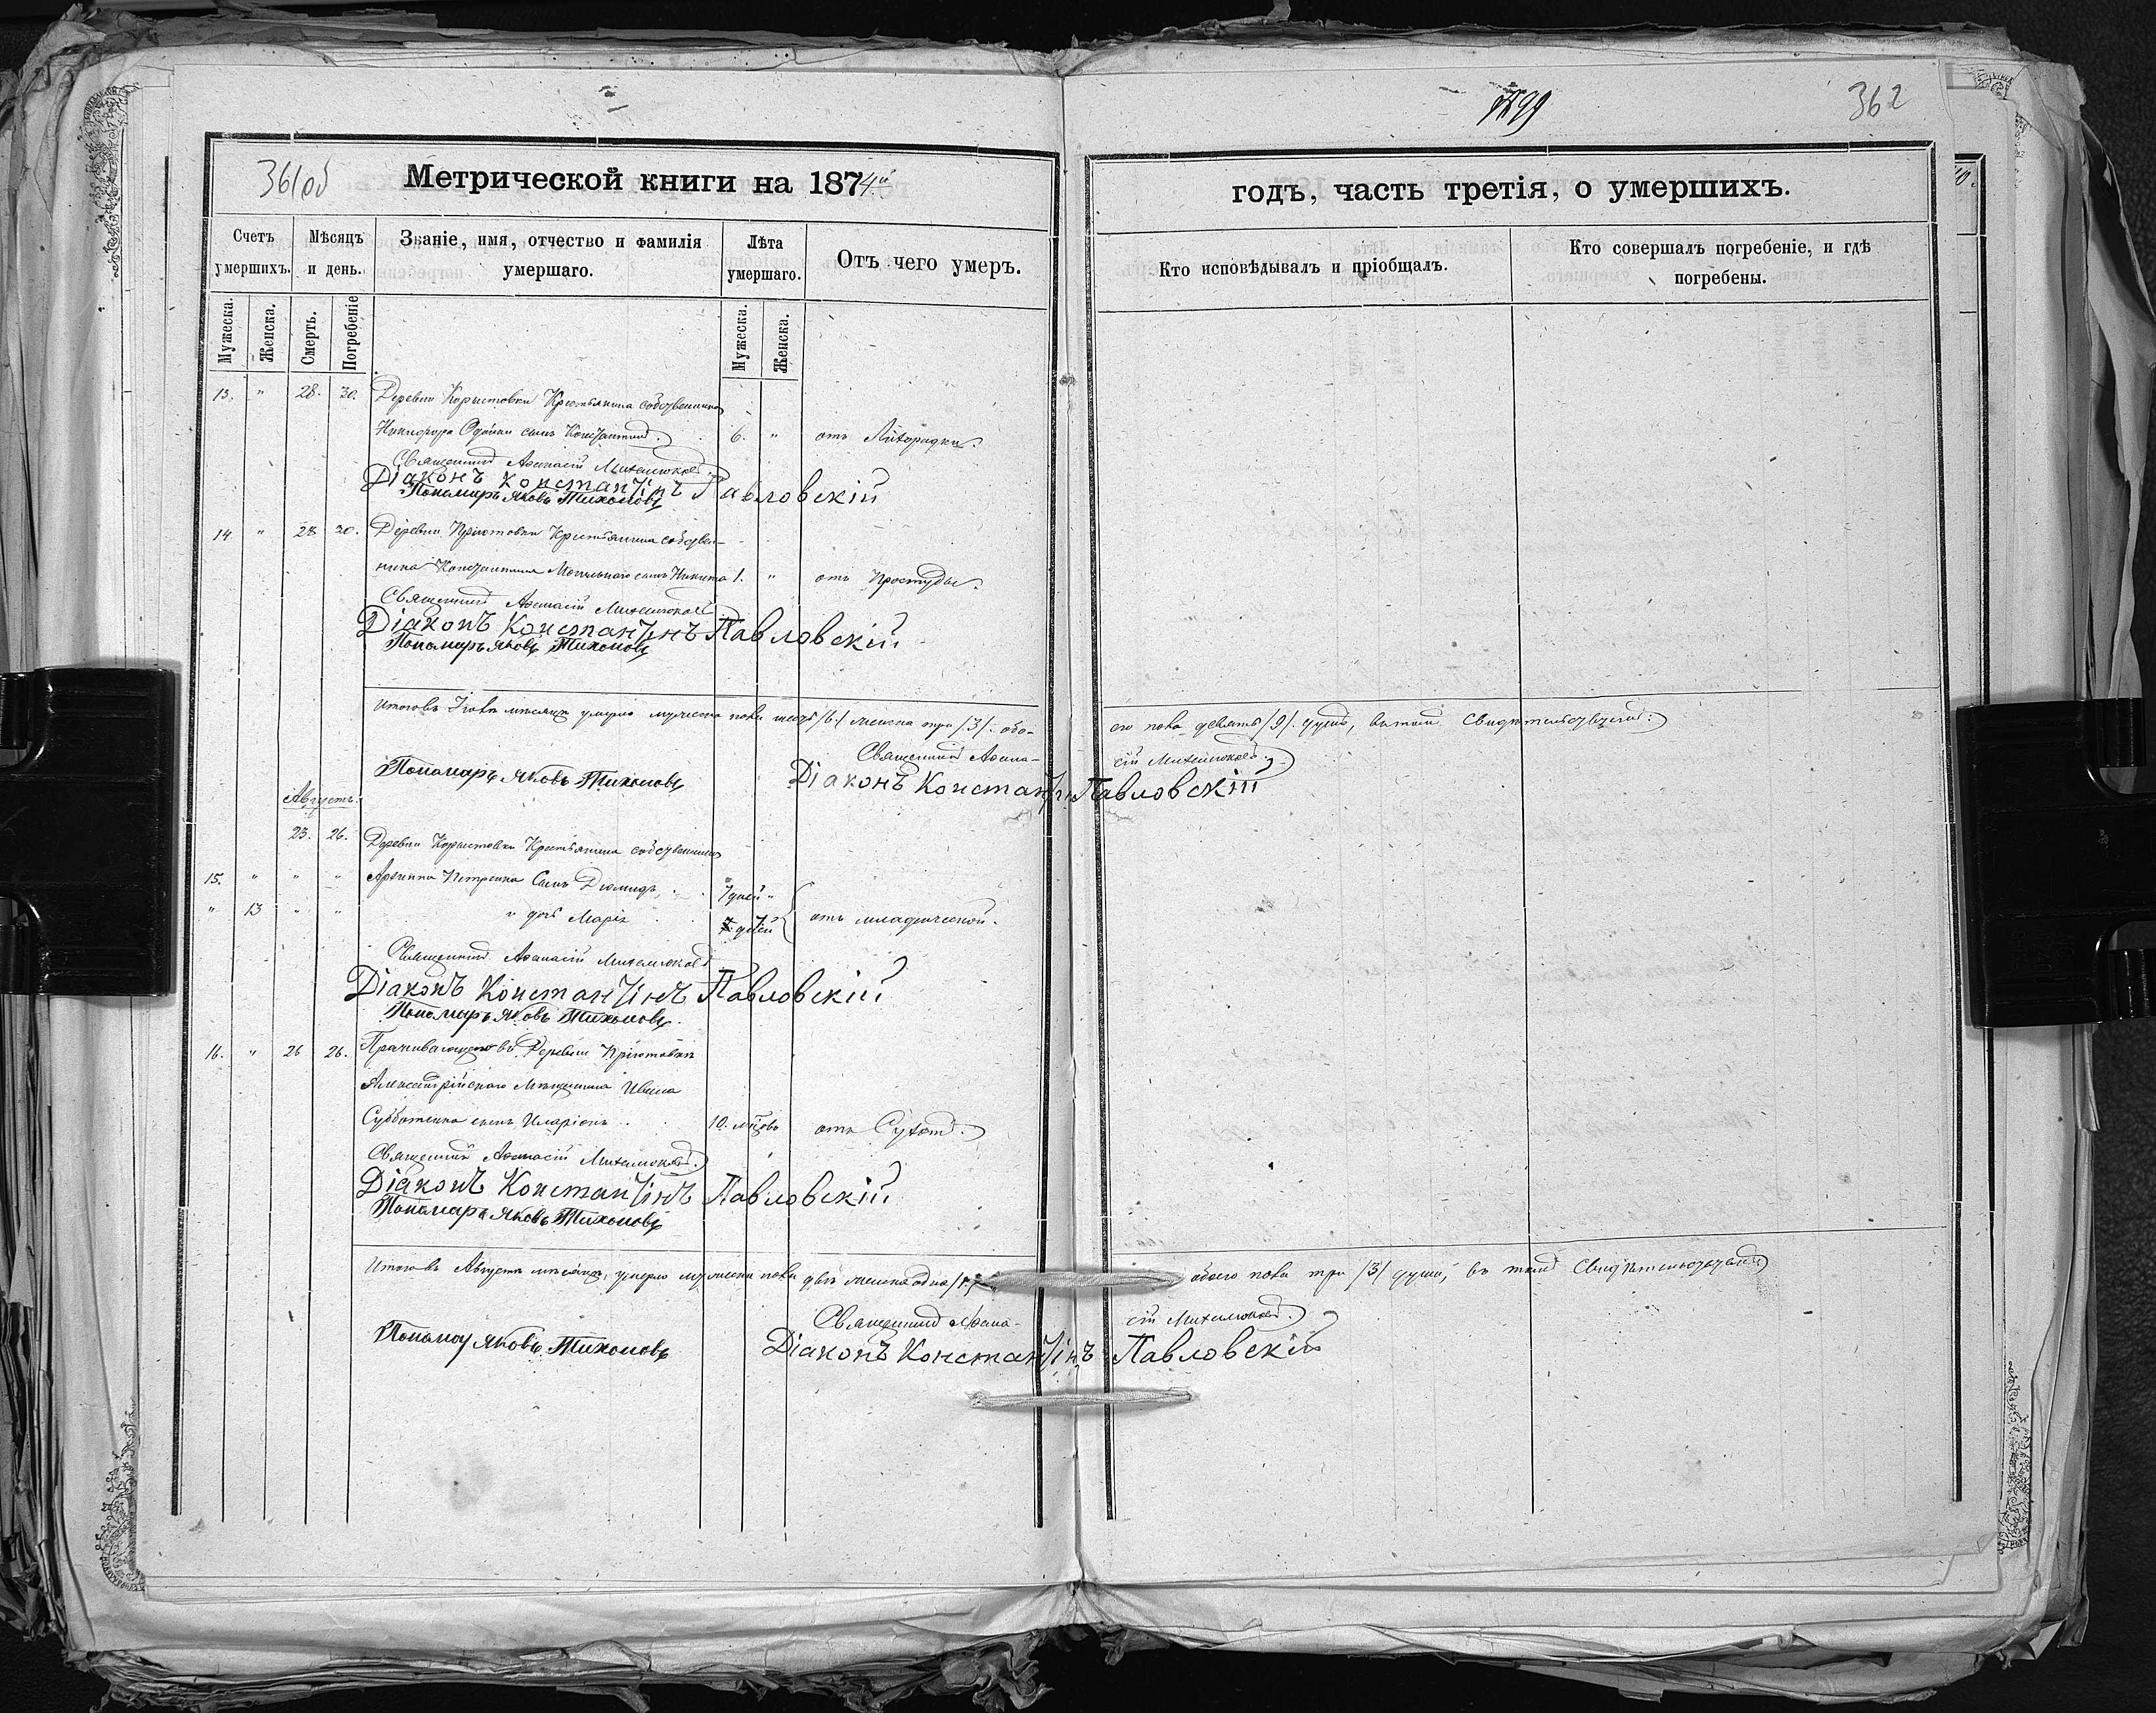 1299
362
361об
Метрической книги на 1874й
годъ, часть третія, о умершихъ.
Счетъ умершихъ.
Мѣсяцъ и день.
Званіе, имя, отчество и фамилія умершаго.
Лѣта умершаго.
Отъ чего умеръ.
Кто исповѣдывалъ и пріобщалъ.
Кто совершалъ погребеніе, и гдѣ погребены.
Мужеска.
Женска.
Смерть.
Погребеніе
Мужеска.
Женска.
13. " 28. 30. Деревни Корыстовки Крестьянина собственника
Никифора сынъ Константинъ. 6. " отъ
Священникъ Афанасій
Діаконъ Константинъ Павловскій
Пономарь Яковъ Тихоновъ
14 " 28 30. Деревни Пріютовки Крестьянина собствен-
ника Константина сынъ Никита 1. " отъ Простуды.
Священникъ Афанасій
Діаконъ Константинъ Павловскій
Пономарь Яковъ Тихоновъ
Итого въ мѣсяцѣ умерло мужеска пола шесть /6/ женска три /3/ обо-
его пола девять /9/ душъ, въ томъ свидѣтельствуемъ:
Священникъ Афана-
сій
Пономарь Яковъ Тихоновъ
Діаконъ Константинъ Павловскій
Августъ.
23. 26. Деревни Корыстовки Крестьянина собственника
15. " " " Петренка Сынъ Діомидъ 7 дней "
" 13 " " и дочь Марія 7 дней отъ младенческой.
Священникъ Афанасій
Діаконъ Константинъ Павловскій
Пономарь Яковъ Тихоновъ.
16. " 26 26. Проживающаго въ Деревни Пріютовки
Александрійскаго Мѣщанина Ивана
Субботенка сынъ Иларіонъ 10. мѣсяцовъ отъ Сухотъ.
Священникъ Афанасій
Діаконъ Константинъ Павловскій
Пономарь Яковъ Тихоновъ
Итого въ Августѣ мѣсяцѣ, умерло мужеска пола два женска одна /1/
обоего пола три /3/ души, въ томъ Свидѣтельствуемъ
Священникъ Афана-
сій
Пономарь Яковъ Тихоновъ
Діаконъ Константинъ Павловскій